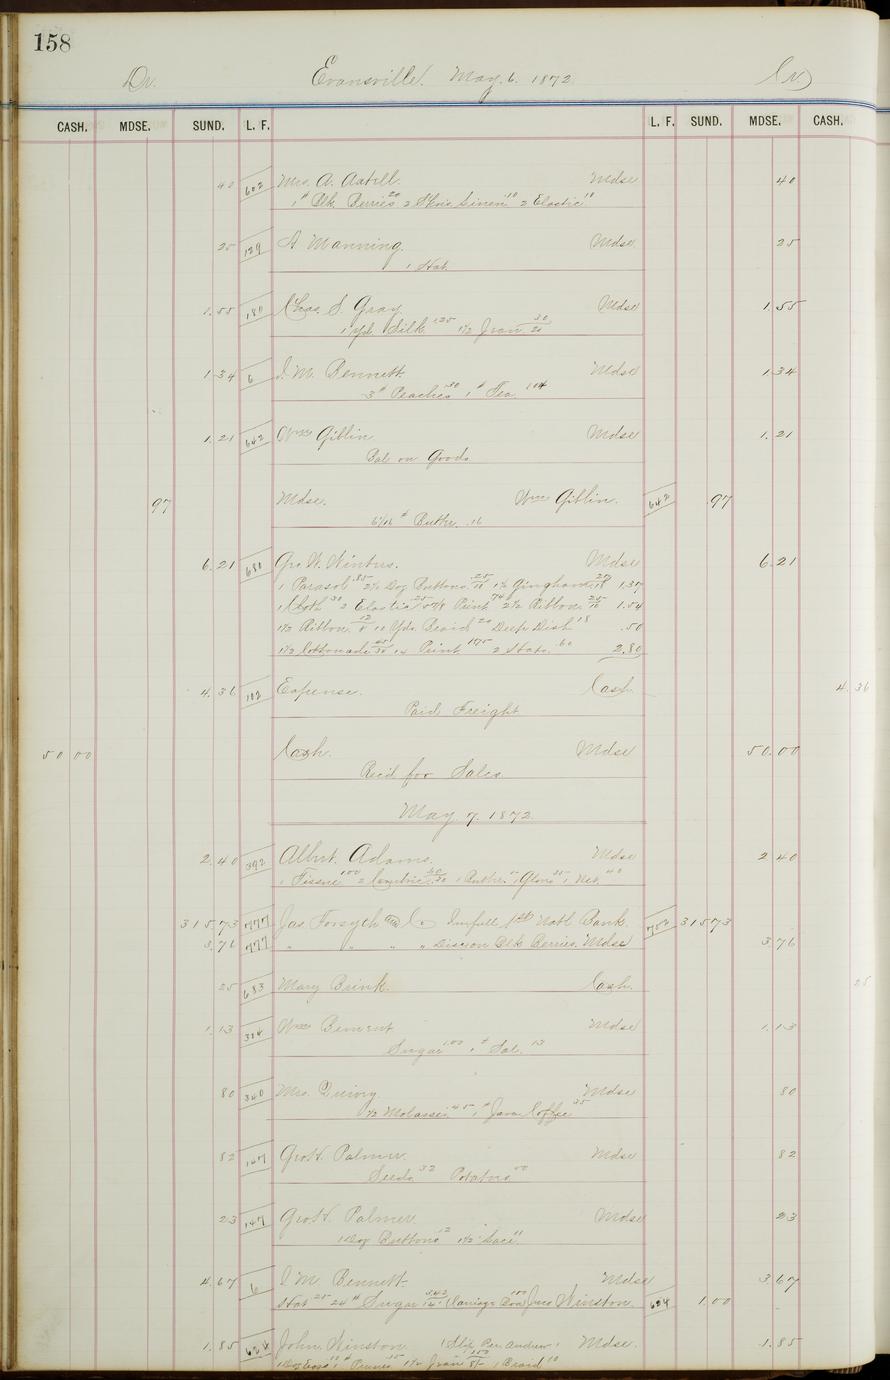 158
Dr. Evansville. May. 6. 1872 Cr.
CASH. MDSE. SUND. L. F. L. F. SUND. MDSE. CASH.
40 602 Mrs. A. Mdse 40
1 # Blk. Berries 20 2 Linen 10 2 Elastic 10
25 129 A Manning. Mdse 25
1 Hat.
1.55 180 Chas. S. Gray. Mdse 1.55
1 Yd. Silk 1.25 1 1/2 Jean 30/20
1.34 6 I. M. Bennett. Mdse 1.34
3 # Peaches .30 1 # Tea 1.04
1.21 642 Wm Giblin Mdse 1.21
Bal on Goods.
97 Mdse. Wm Giblin. 642 .97
# Butter .16
6.21 680 Geo. W. Winters. Mdse 6.21
1 Parasol .85 2 1/2 Doz Buttons Gingham 1.37
1 Cloth 30 2 Elastic Print 2 1/2 Ribbon 1.54
1 1/2 Ribbon 12 Yds. Braid 20 Deep Dish 18 .50
1 1/2 Cottonade Print 1.75 2 Hats .60 2.80
4.36 102 Expense. Cash. 4.36
Paid Freight
50 00 Cash. Mdse 50.00
Rec'd for Sales.
May. 7. 1872.
2.40 392 Albert. Adams. Mdse 2 40
1 Tissue 1.00 2 Cambric 1 Butter 1 Gloves 1 Net.
315.73 777 Jas Forsyth & Co Infull 1st Natl Bank. 702 315 73
3.76 777 " " " " Discon Blk Berries. Mdse 3.76
25 683 Mary Brink. Cash. 25
1.13 314 Wm Bement Mdse 1.13
Sugar 1.00 1 # Sal. 13
80 340 Mrs. Quivey. Mdse 80
1/2 Molasses .45 1 # Java Coffee 35
82 147 Geo H. Palmer. Mdse 82
Seeds 32 Potatoes 50
23 147 Geo H. Palmer. Mdse 23
1 Doz Buttons 12 1 1/2 Lace 11
4.67 6 I. M. Bennett. Mdse 3.67
Hat 25 24 # Sugar 3.42/14 Jno Winston. 624 1.00
1.85 624 John. Winston 1 Slip Per Andrew. Mdse. 1.85
1 Doz Eggs 1 # Prunes 1 1/2 Jean 1 Braid 10